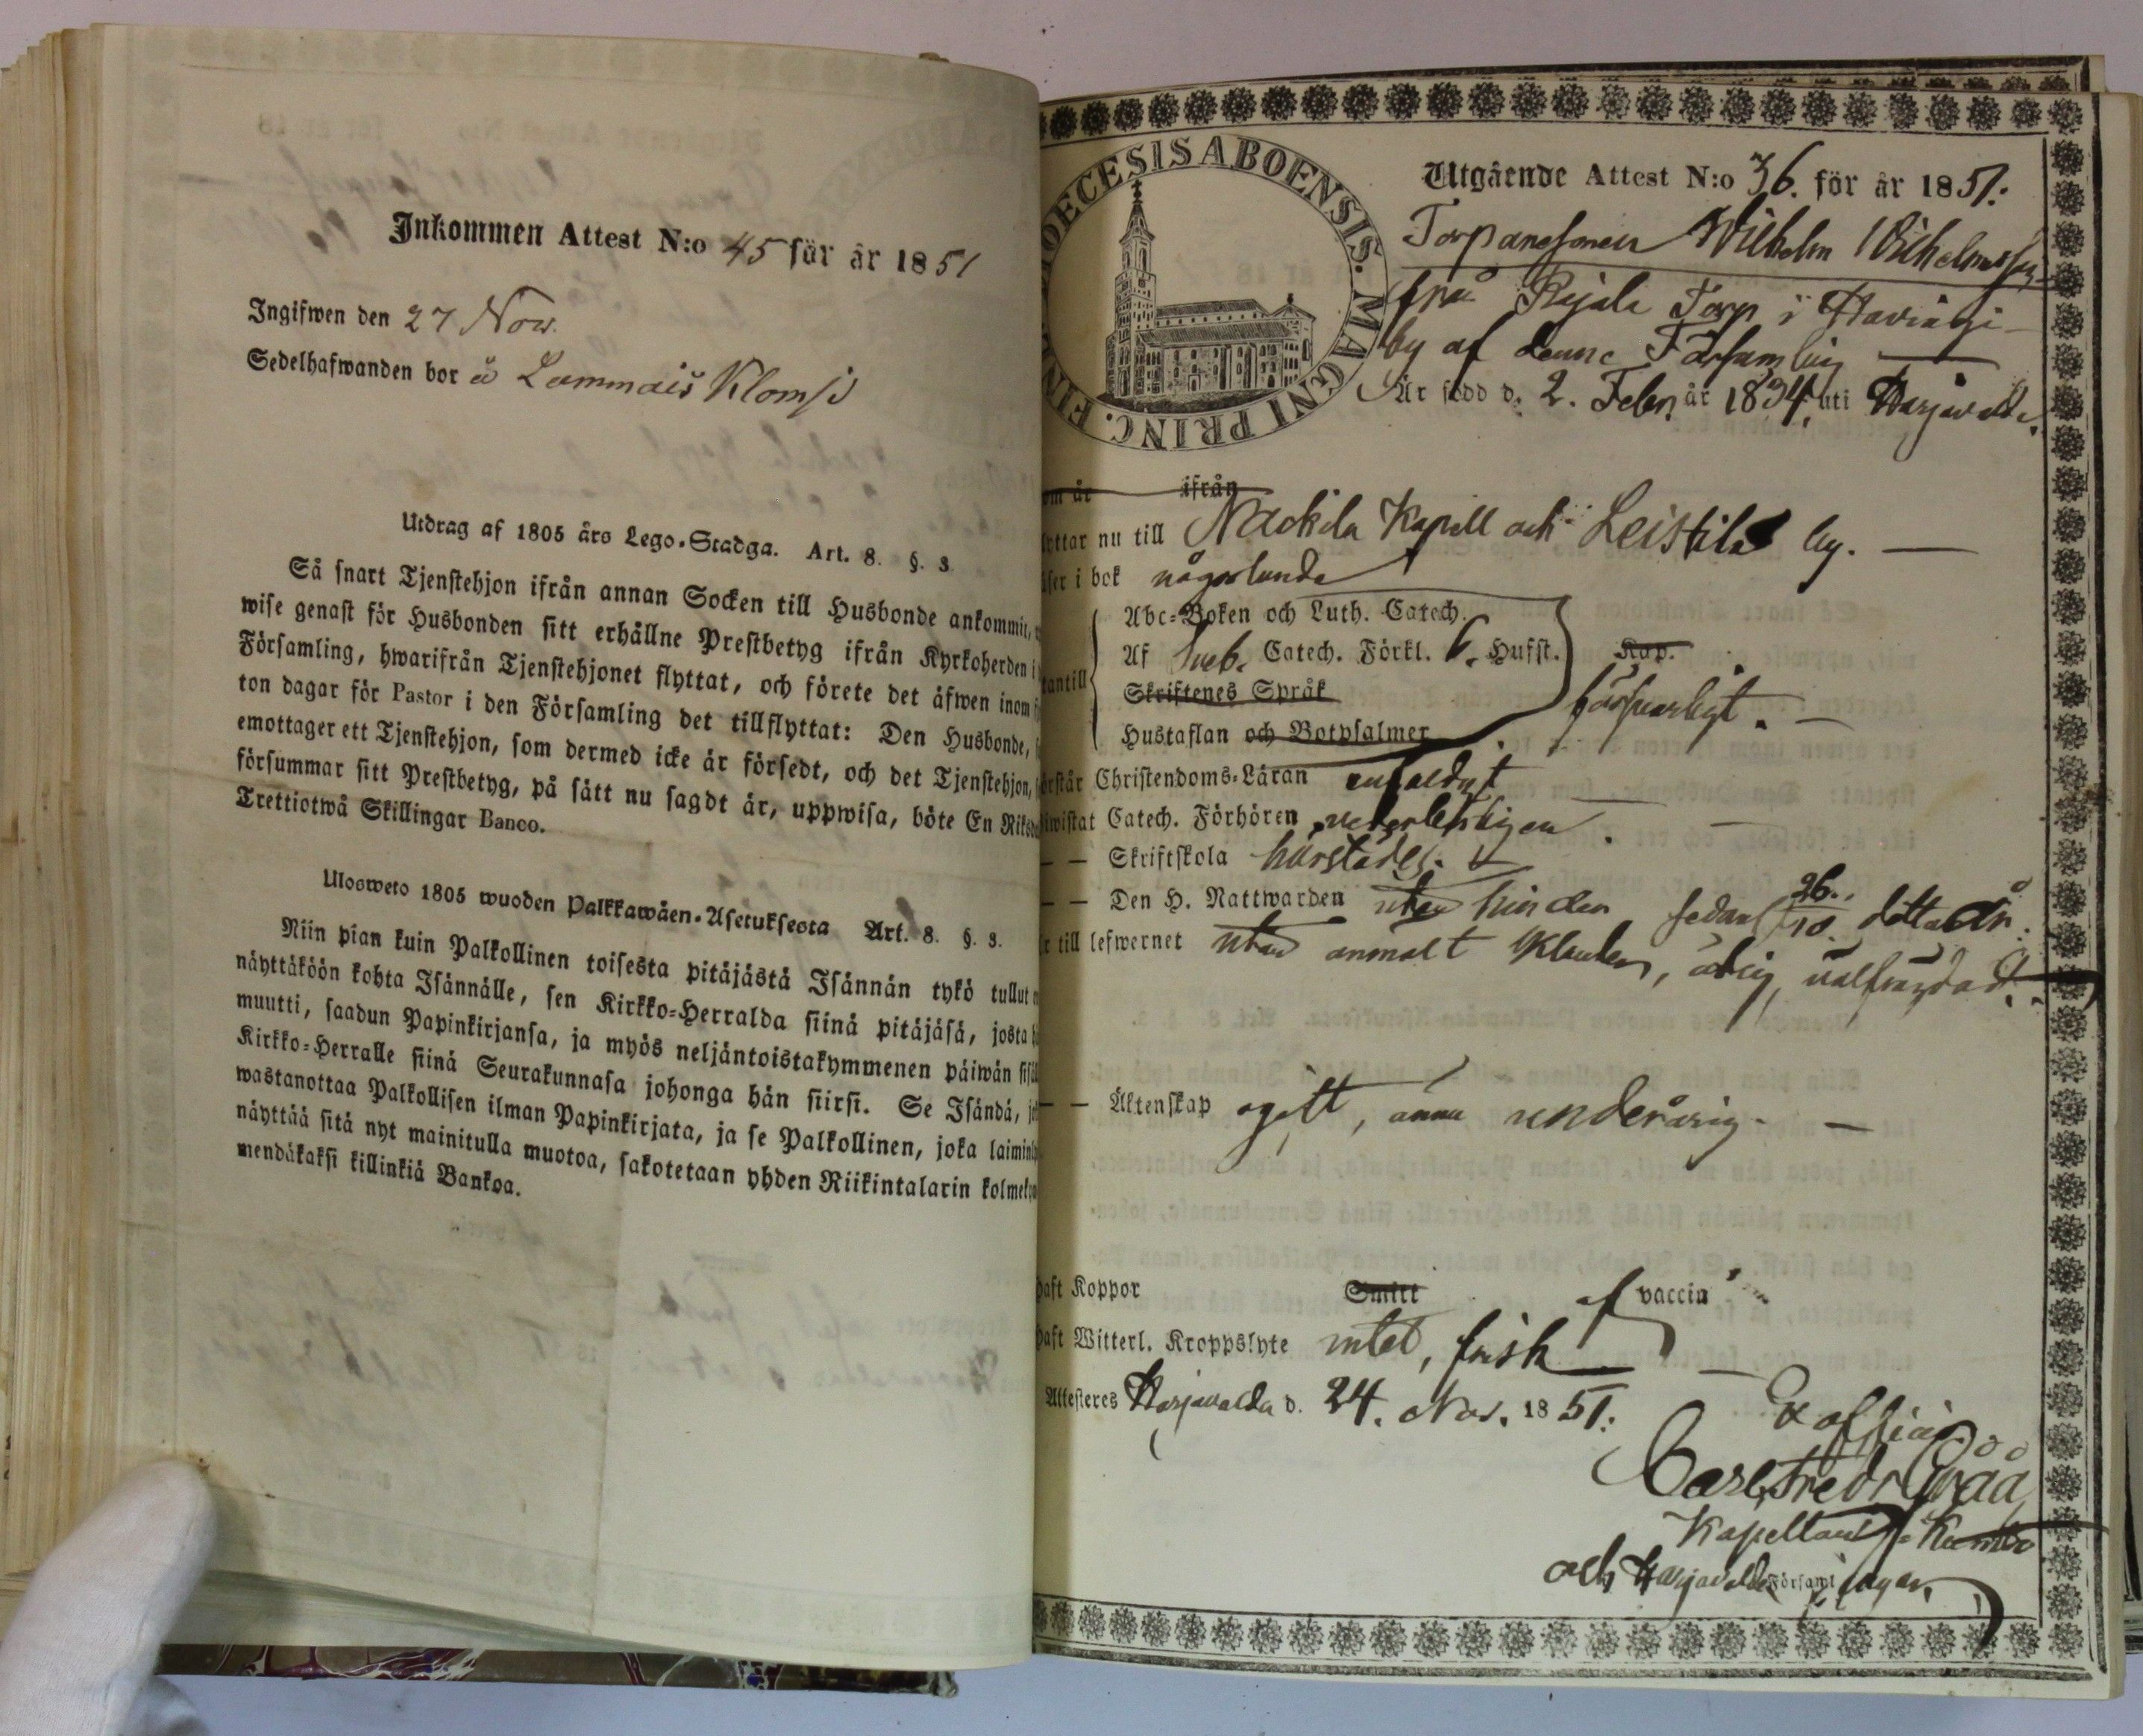 Inkommen Attest N:o 45 för år 1851
Ingifwen den 27 Nov.
Sedelhafwanden bor å Lammais Klomsi
Utdrag af 1805 års Lego-Stadga. Art. 8. §. 3.
Så snart Tjenstehjon ifrån annan Socken till Husbonde ankommit,
wise genast för Husbonden sitt erhållne Prestbetyg ifrån Kyrkoherden i
Församling, hwarifrån Tjenstehjonet flyttat, och förete det äfwen inom
ton dagar för Pastor i den Församling det tillflyttat: Den Husbonde,
emottager ett Tjenstehjon, som dermed icke är försedt, och det Tjenstehjon,
försummar sitt Prestbetyg, på sätt nu sagdt är, uppwisa, böte En Riks
Trettiotwå Skillingar Banco.
Ulosweto 1805 wuoden Palkkawäen-Asetuksesta Art. 8. §. 3.
Niin pian kuin Palkollinen toisesta pitäjästä Isännän tykö tullut
näyttäköön kohta Isännälle, sen Kirkko-Herralda siinä pitäjäsä, josta
muutti, saadun Papinkirjansa, ja myös neljäntoistakymmenen päiwän
Kirkko-Herralle siinä Seurakunnasa johonga hän siirsi. Se Isändä,
wastanottaa Palkollisen ilman Papinkirjata, ja se Palkollinen, joka
näyttää sitä nyt mainitulla muotoa, sakotetaan yhden Riikintalarin
mendäkaksi killinkiä Bankoa.
DIOECESIS ABOENSIS. MAGNI PRINC. FINL
Utgående Attest N:o 36. för år 1851.
Torparesonen Wilhelm Wilhelmsson
från Rejala Torp i Havingi
by af denne Församling
Är född d. 2. Febr. år 1834. uti Harjavalda.
om år ifrån
yttar nu till Nackila Kapell och Leistila by.
äser i bok någorlunda
Abc-Boken och Luth. Catech.
Af Sveb. Catech. Förkl. 6. Hufst. Kap.
antill
Skriftenes Språk
Hustaflan och Botpsalmer
försvarligt.
örstår Christendoms-Läran enfaldigt
iwistat Catech. Förhören vederbörligen
— — Skriftskola härstädes.
— — Den H. Nattwarden utan hinder sedan 26/10. detta år.
r till lefwernet utan anmält klander, ärlig, välfrägdad.
— — Äktenskap ogift, ännu underårig.
haft Koppor Smitt af vaccin
haft Witterl. Kroppslyte intet, frisk
Attesteres Harjavalda d. 24. Nov. 1851.
Ex officio
Carl Fredr
Kapellan i Kumo
och Harjavalda Församlingar.